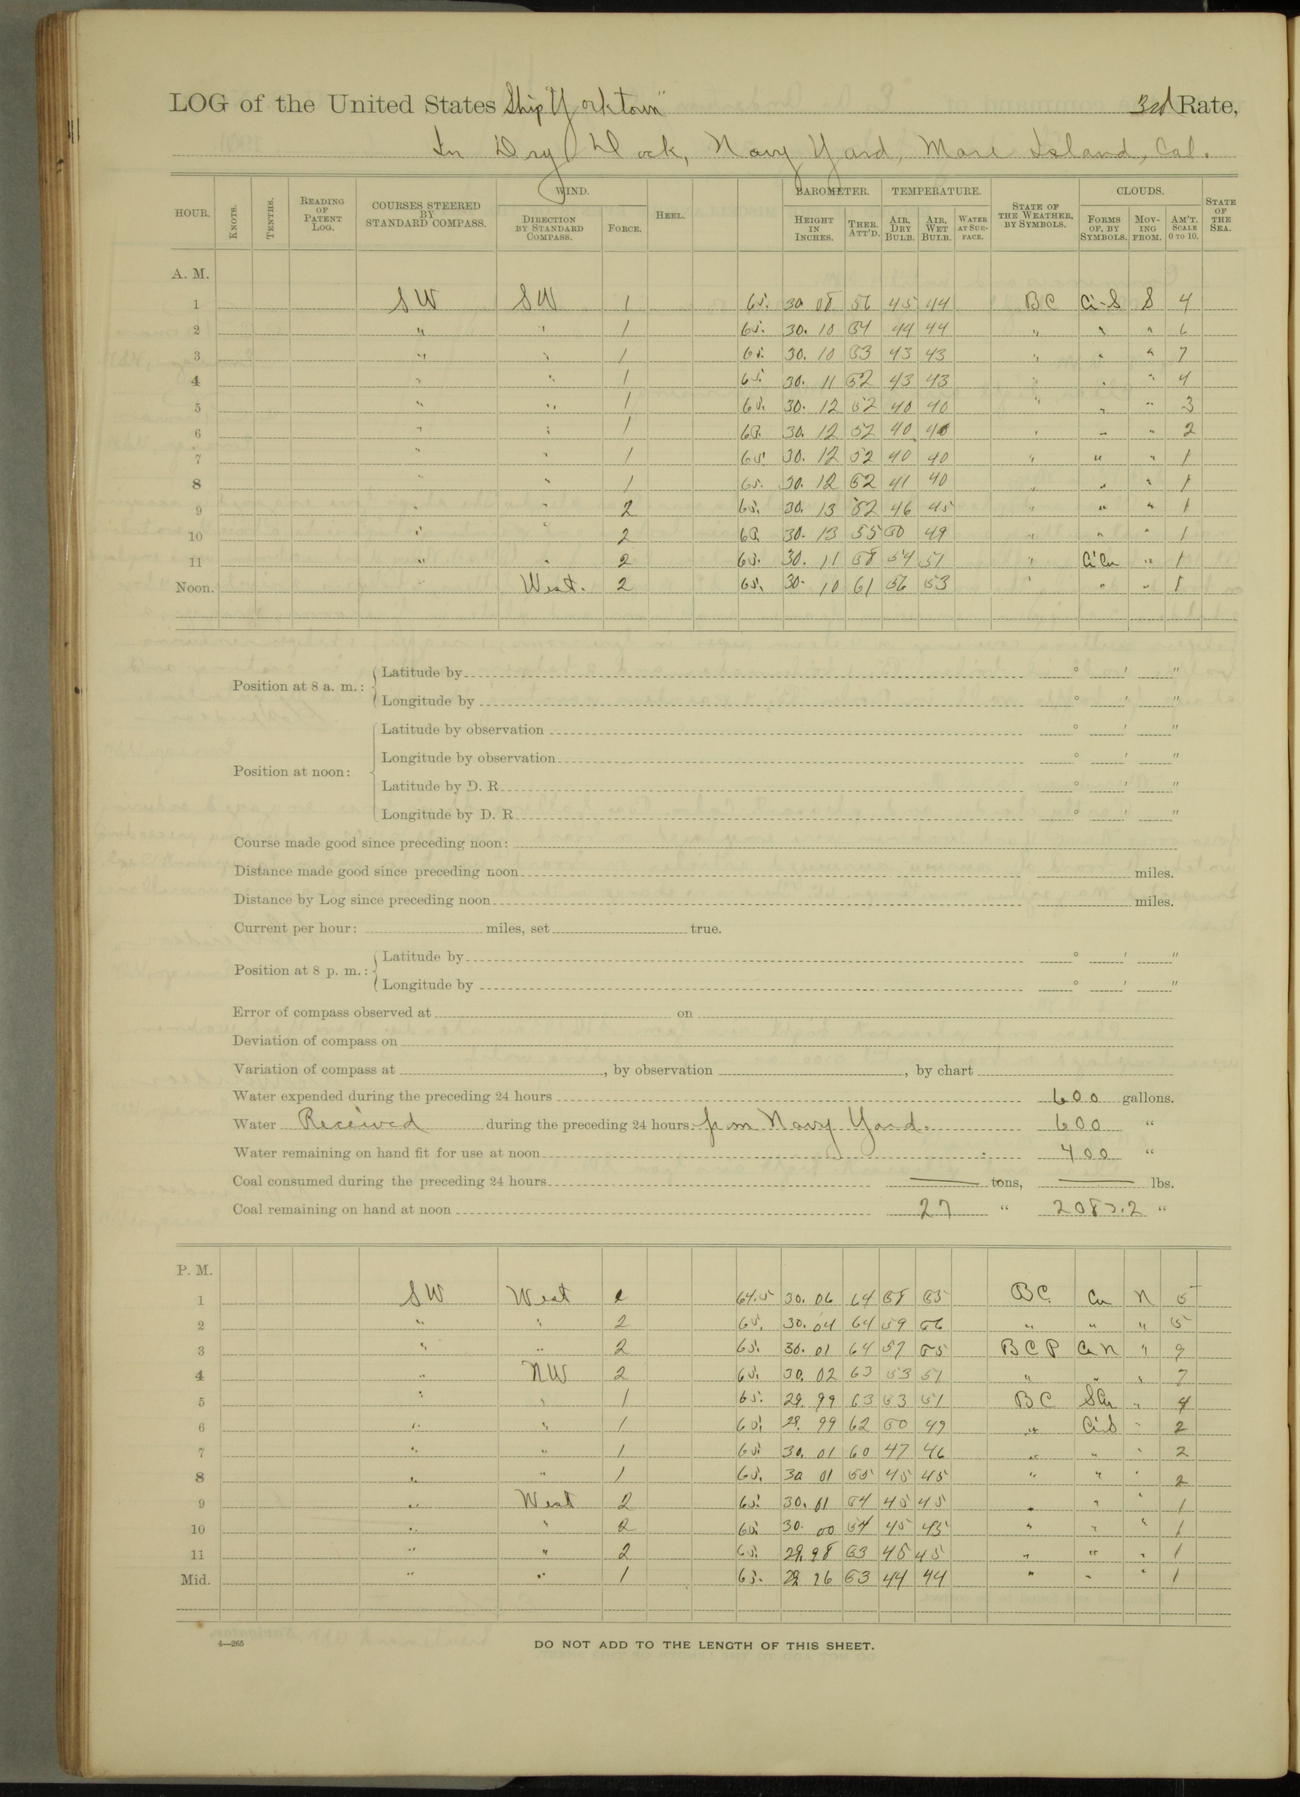 LOG of the United States Ship "Yorktown" 3rd Rate,
In Dry Dock, Navy Yard, Mare Island, Cal.
HOUR. KNOTS. TENTHS. READING OF PATENT LOG. COURSES STEERED BY STANDARD COMPASS. WIND. DIRECTION BY STANDARD COMPASS. FORCE. HEEL. BAROMETER. HEIGHT IN INCHES. THER. ATT'D. TEMPERATURE. AIR, DRY BULB. AIR, WET BULB. WATER AT SURFACE. STATE OF THE WEATHER, BY SYMBOLS. CLOUDS. FORMS OF, BY SYMBOLS. MOVING FROM. AM'T. SCALE 0 TO 10. STATE OF THE SEA.
A. M.
1 SW SW 1 65. 30 08 56 45 44 BC Ci-S S 4
2 " " 1 65. 30. 10 54 44 44 " " " 6
3 " " 1 65. 30. 10 53 43 43 " " " 7
4 " " 1 65. 30. 11 52 43 43 " " " 4
5 " " 1 65. 30. 12 52 40 40 " " " 3
6 " " 1 65. 30. 12 52 40 40 " " " 2
7 " " 1 65. 30. 12 52 40 40 " " " 1
8 " " 1 65. 30. 12 52 41 40 " " " 1
9 " " 2 65. 30. 13 52 46 45 " " " 1
10 " " 2 65. 30. 13 55 50 49 " " " 1
11 " " 2 65. 30. 11 58 54 51 " Ci Cu " 1
Noon. " West. 2 65. 30. 10 61 56 53 " " " 1
Position at 8 a. m.: Latitude by ° ' "
Longitude by ° ' "
Latitude by observation ° ' "
Position at noon: Longitude by observation ° ' "
Latitude by D. R. ° ' "
Longitude by D. R. ° ' "
Course made good since preceding noon:
Distance made good since preceding noon miles.
Distance by Log since preceding noon miles.
Current per hour: miles, set true.
Position at 8 p. m.: Latitude by ° ' "
Longitude by ° ' "
Error of compass observed at on
Deviation of compass on
Variation of compass at , by observation , by chart
Water expended during the preceding 24 hours 600 gallons.
Water Received during the preceding 24 hours from Navy Yard. 600 "
Water remaining on hand fit for use at noon 400 "
Coal consumed during the preceding 24 hours — tons, — lbs.
Coal remaining on hand at noon 27 "
P. M.
1 SW West 64.5 30. 06 64 58 55 BC. Cu N 5
2 " " 2 65. 30. 04 64 59 56 " " " 5
3 " " 2 65. 30. 01 64 57 55 BCP Cu N " 9
4 " NW 2 65. 30. 02 63 53 51 " " " 7
5 " " 1 65. 29. 99 63 53 51 BC S Cu " 4
6 " " 1 65. 29. 99 62 50 49 " Ci S " 2
7 " " 1 65. 30. 01 60 47 46 " " " 2
8 " " 1 65. 30 01 55 45 45 " " " 2
9 " West 2 65. 30. 01 54 45 45 " " " 1
10 " " 2 65. 30. 00 54 45 45 " " " 1
11 " " 2 65. 29. 98 53 45 45 " " " 1
Mid. " " 1 65. 29 96 53 44 44 " " " 1
4—265 DO NOT ADD TO THE LENGTH OF THIS SHEET.